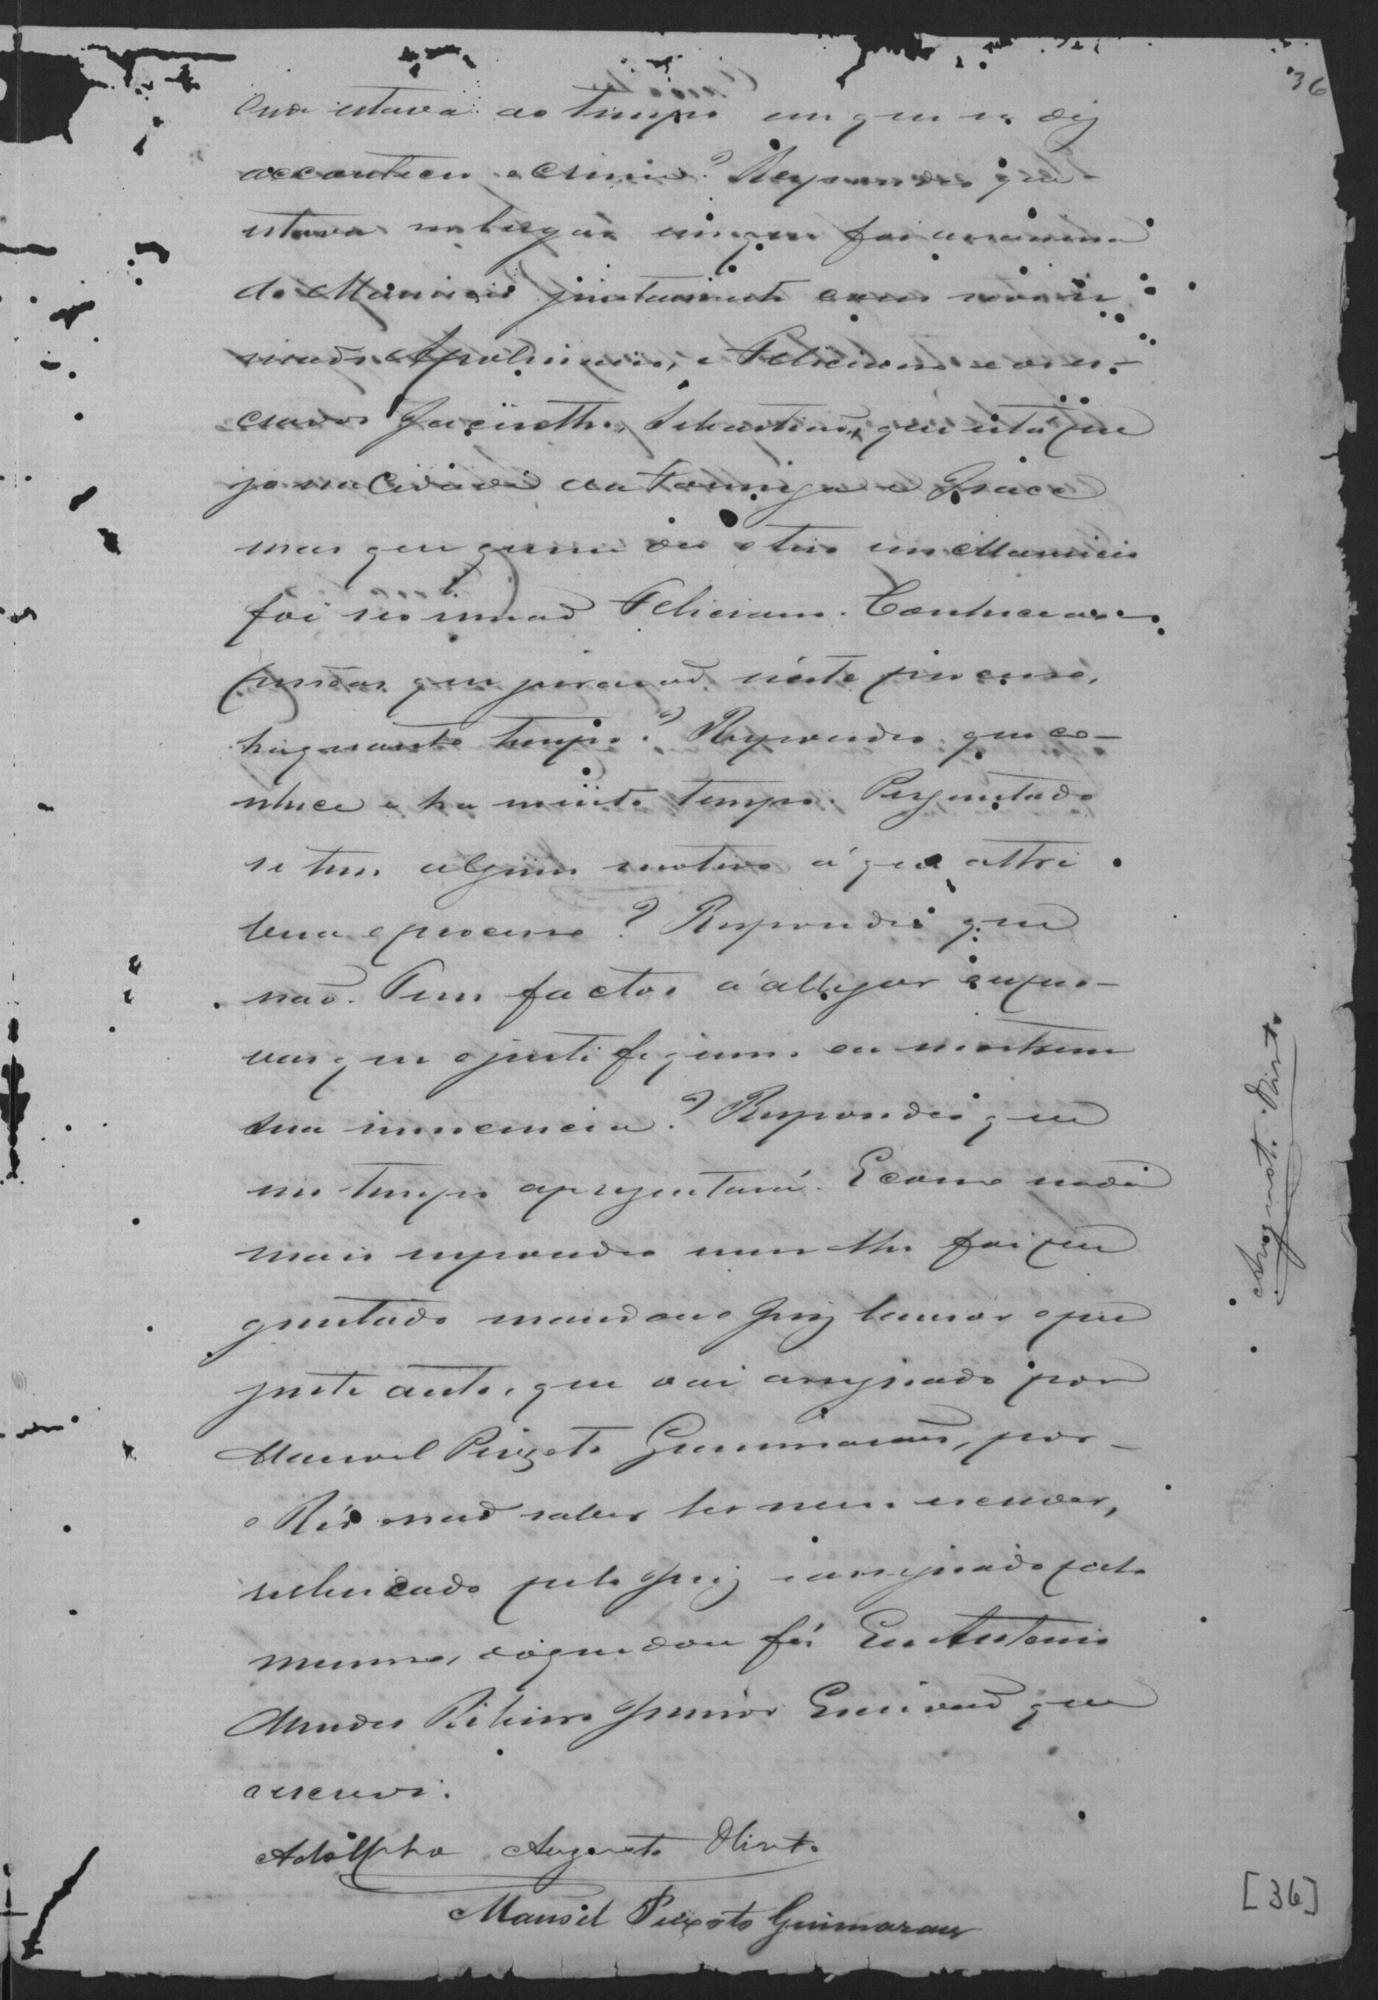 36
Onde estava ao tempo em que se diz
aconteceu o crime? Respondeo que
estava no lugar em que foi assassina
do Mauricio juntamente com seos ir
mãos Apolinario, e Feliciano e os es-
cravos Jacintho, Sebastião, que está pre
so na Cidade da Formiga e Ignacio
mas que quem deo o tiro em Mauricio
foi seo irmão Feliciano. Conhece as
pessoas que jurarão neste processo,
ha quanto tempo? Respondeo que co-
nhece e ha muito tempo. Perguntado
se tem algum motivo á que attri
bua o processo? Respondeo que
não. Tem factos á allegar ou pro-
vas que o justifiquem ou mostrem
sua innocencia? Respondeo que
no tempo apresentará. E como nada
mais respondeo nem lhe foi per
guntado mandou o Juiz lavrar o pre
sente auto, que vai assignado por
Manoel Peixoto Guimarães, por
o Réo não saber ler nem escrever,
rubricado pelo Juiz e assignado pelo
mesmo, do que dou fé. Eu Antonio
Mendes Ribeiro Junior Escrivão que
o escrevi.
Adolpho Augusto Olinto
Manoel Peixoto Guimarães
Augusto Olinto
[36]